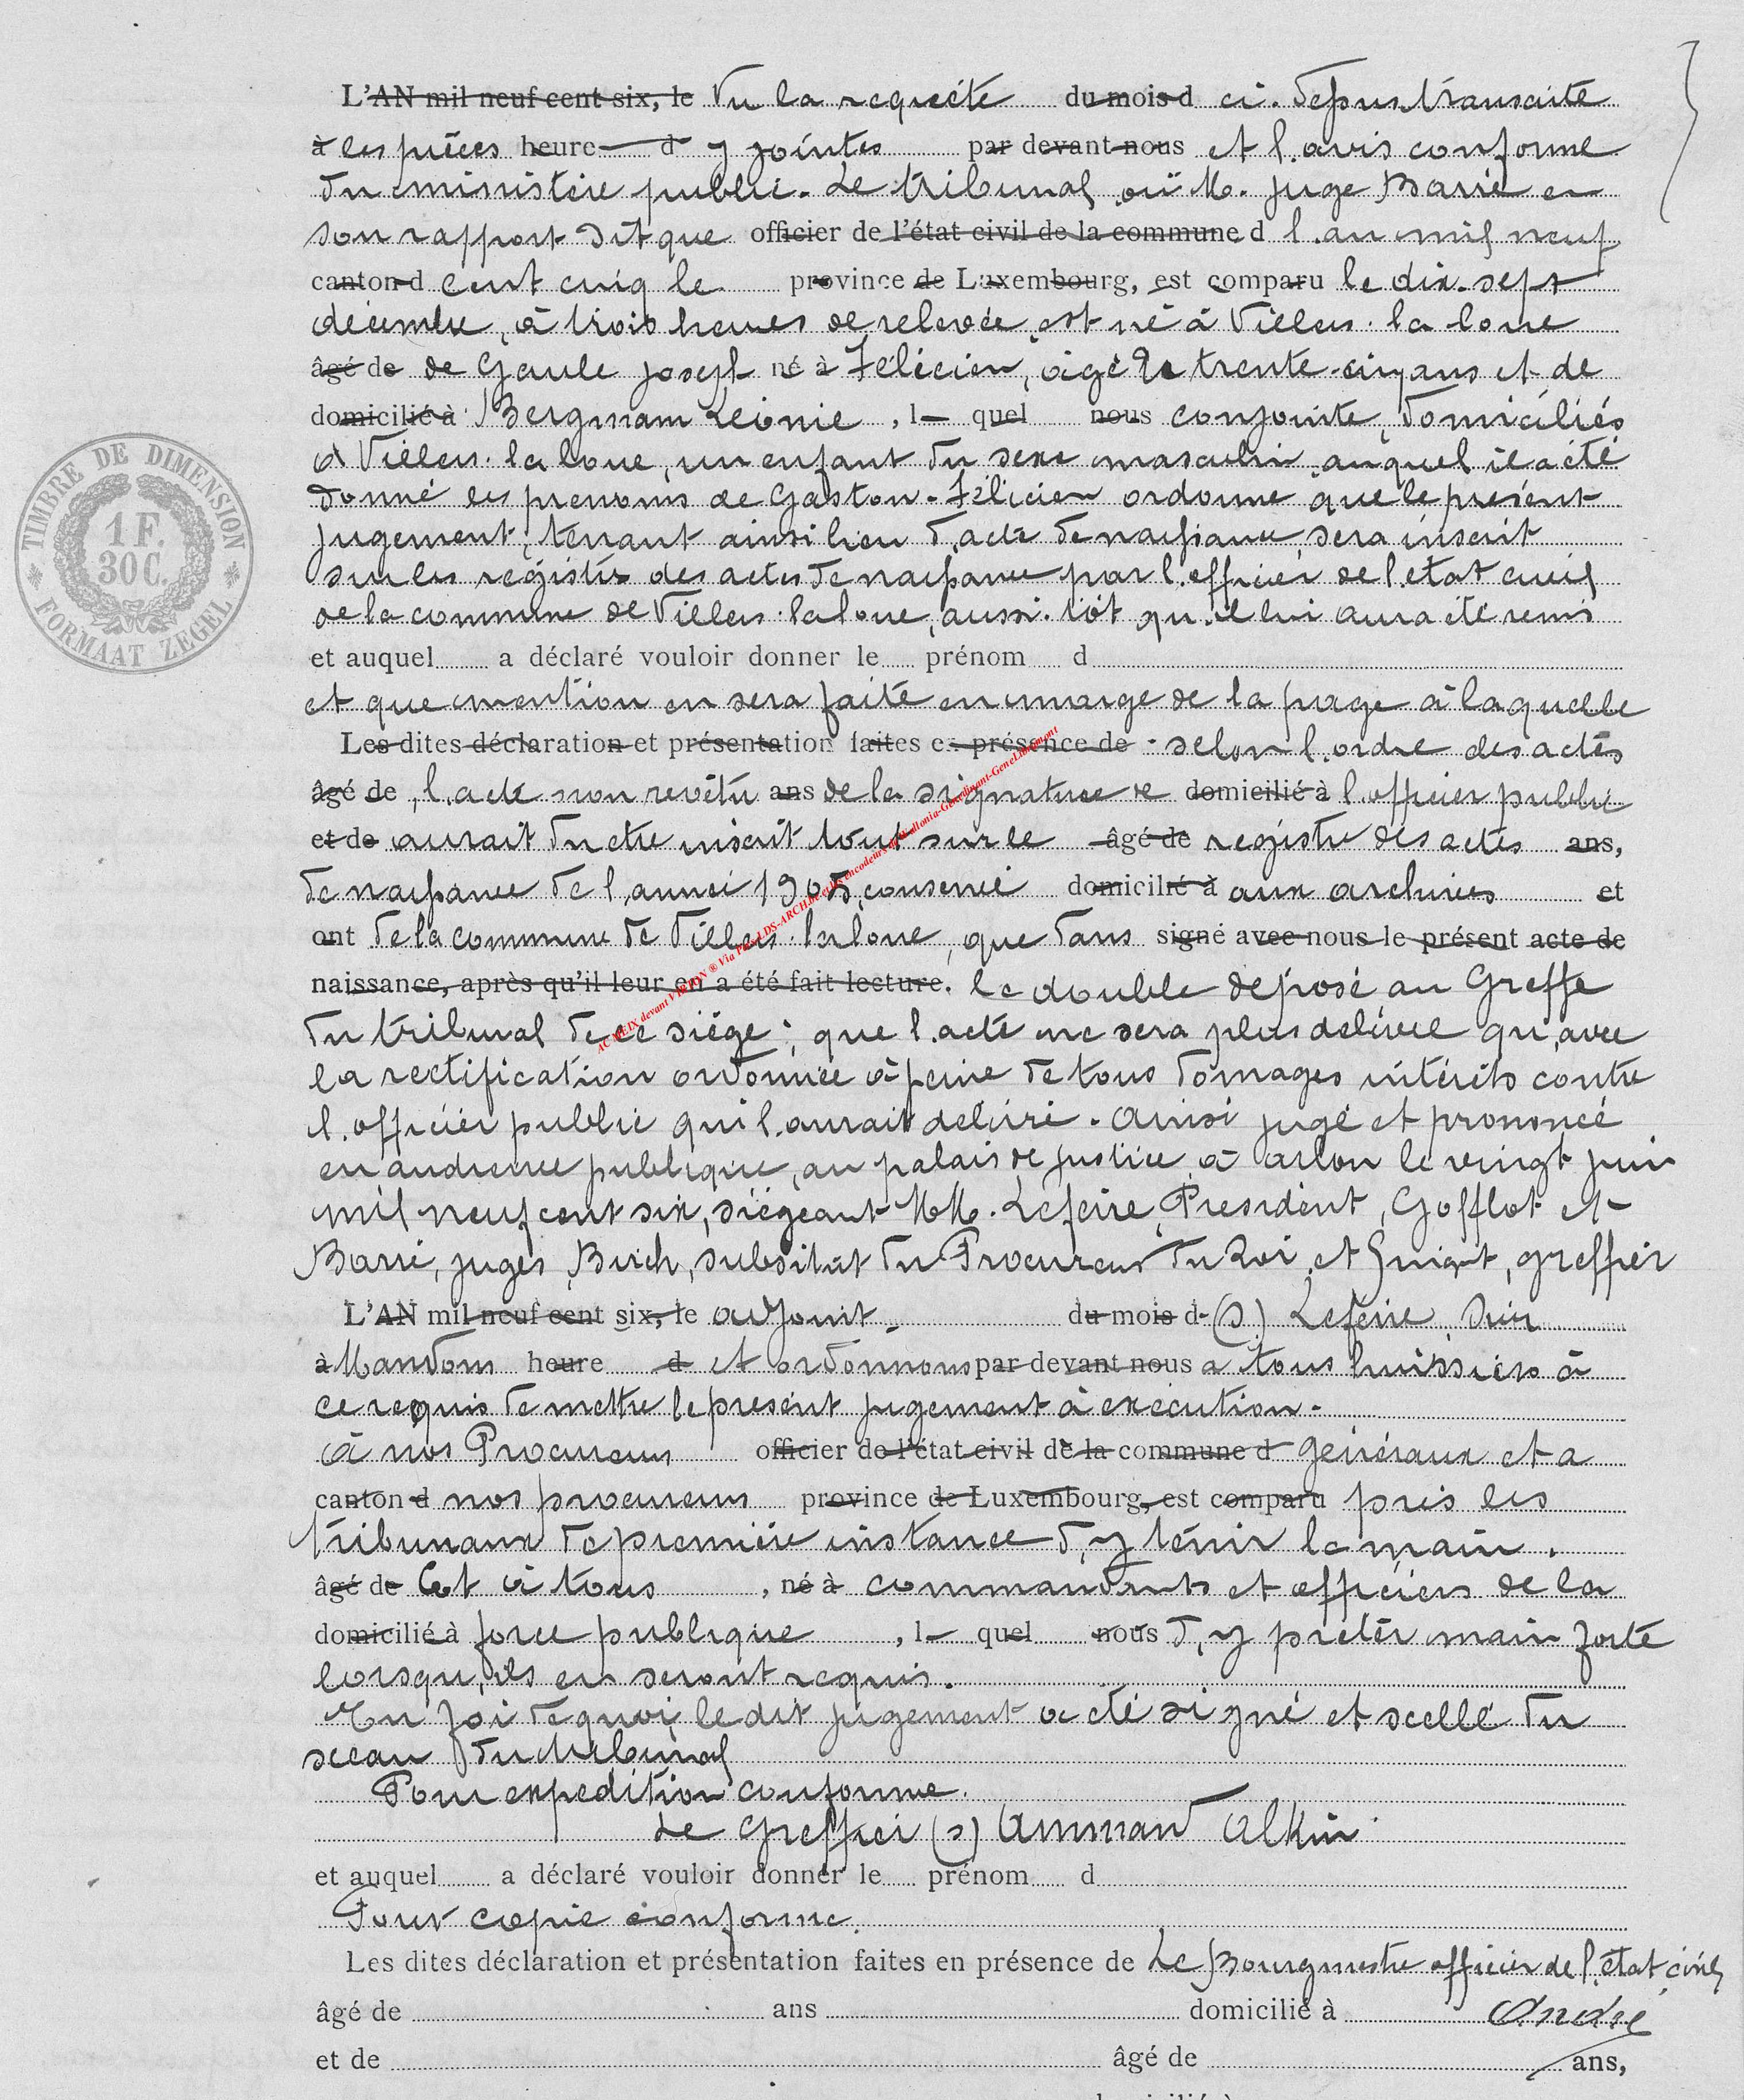 L'AN mil neuf cent six, le Vu la requête du mois d ci-dessus transcrite
à les pièces heure d y jointes par devant nous et l'avis conforme
du ministère public. Le tribunal ouï M. juge Barré en
son rapport dit que officier de l'état civil de la commune d l'an mil neuf
canton d cent cinq le province de Luxembourg, est comparu le dix-sept
décembre, à trois heures de relevée, est né à Villers-la-loue
âgé de de Gaule Joseph né à Félicien, âgé de trente-cinq ans et de
domicilié à Bergmam Léonie , l quel nous conjointe, domiciliés
à Villers-la loue, un enfant du sexe masculin auquel il a été
donné les prénoms de Gaston-Félicien ordonne que le présent
jugement, tenant ainsi lieu d'acte de naissance, sera inscrit
sur les registres des actes de naissance par l'officier de l'état civil
de la commune de Villers-la loue, aussi-tôt qu'il lui aura été remis
et auquel a déclaré vouloir donner le prénom d
et que mention en sera faite en marge de la page à laquelle
Les dites déclaration et présentation faites en présence de selon l'ordre des actes
âgé de , l'acte non revêtu ans de la signature de domicilié à l'officier public
et de aurait du être inscrit tout sur le âgé de registre des actes ans,
de naissance de l'année 1905, conservé domicilié à aux archives et
ont de la commune de Villers-la loue, que dans signé avec nous le présent acte de
naissance, après qu'il leur en a été fait lecture. le double déposé au Greffe
du tribunal de ce siège; que l'acte ne sera plus délivré qu'avec
la rectification ordonnée à peine de tous domages intérêts contre
l'officier public qui l'aurait délivré. Ainsi jugé et prononcé
en audience publique, au palais de justice à Arlon le vingt juin
mil neuf cent six, siégeant MM. Lefeire, Président, Gofflot et
Barré, juges, Burch, substitut du Procureur du Roi, et greffier
L'AN mil neuf cent six, le adjoint du mois d (s) Lefeire,
à Mandons heure d et ordonnons par devant nous a tous huissiers à
ce requis de mettre le présent jugement à exécution.
à nos Procureurs officier de l'état civil de la commune d généraux et a
canton d nos procureurs province de Luxembourg, est comparu près les
tribunaux de première instance d'y tenir la main.
âgé de et à tous , né à commandants et officiers de la
domicilié à force publique , l quel nous d'y prêter main forte
lorsqu'ils en seront requis.
En foi de quoi le dit jugement a été signé et scellé du
sceau du tribunal
Pour expédition conforme.
Le Greffier (s) Amman Alkin
et auquel a déclaré vouloir donner le prénom d
Pour copie conforme.
Les dites déclaration et présentation faites en présence de Le Bourgmestre officier de l'état civil
âgé de ans domicilié à André
et de âgé de ans,
TIMBRE DE DIMENSION
1 F.
30 C.
FORMAAT ZEGEL